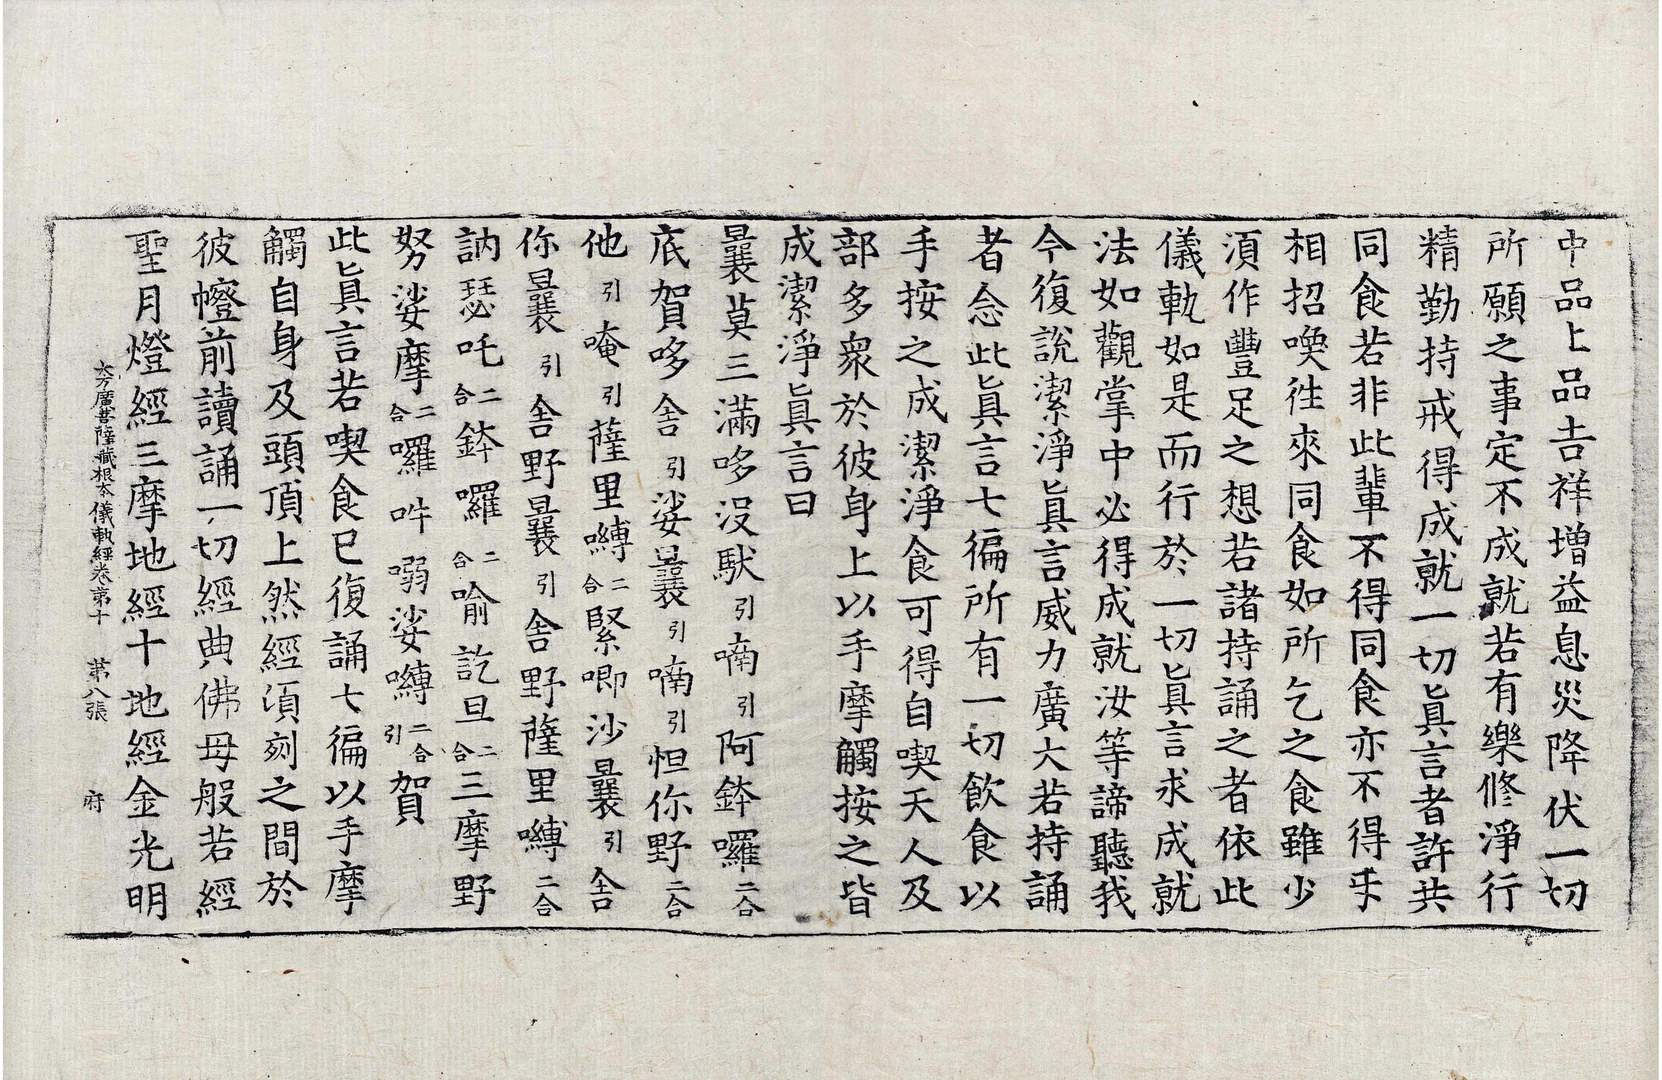 中品上品吉祥增益息災降伏一切
所願之事定不成就若有樂修淨行
精勤持戒得成就一切眞言者許共
同食若非此輩不得同食亦不得乎
相招喚徃來同食如所乞之食雖少
湏作豐足之想若諸持誦之者依此
儀軌如是而行於一切眞言求成就
法如觀掌中必得成就汝等諦聽我
今復說潔淨眞言威力廣大若持誦
者念此眞言七徧所有一切飲食以
手按之成潔淨食可得自喫天人及
部多衆於彼身上以手摩觸按之皆
成潔淨眞言曰
曩莫三滿哆沒馱引喃引阿鉢囉二合
底賀哆舍引娑曩引喃引怛你野二合
他引唵引薩里嚩二合緊唧沙曩引舍
你曩引舍野曩引舍野薩里嚩二合
訥瑟吒二合鉢囉二合喻訖旦二合三摩野
努娑摩二合囉吽𠺁娑嚩二合引賀
此眞言若喫食已復誦七徧以手摩
觸自身及頭頂上然經湏刻之間於
彼㡧前讀誦一切經典佛母般若經
聖月燈經三摩地經十地經金光明
大方廣菩薩藏根本儀軌經卷第十 第八張 府